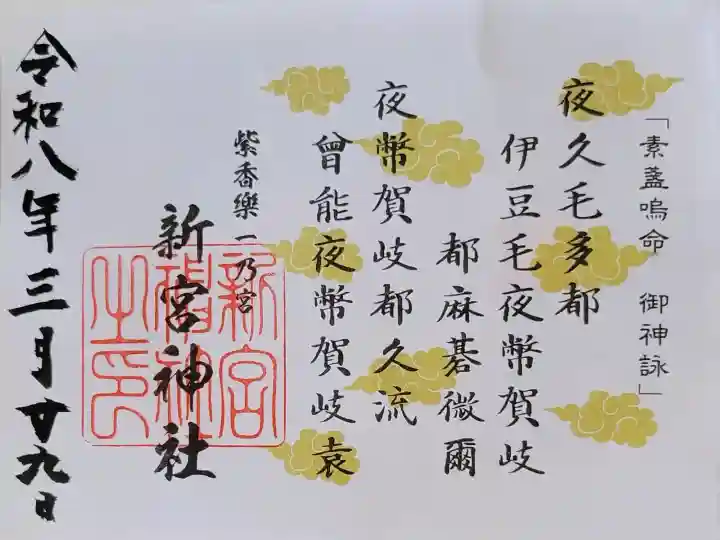 「素盞嗚命 御神詠」
夜久毛多都
伊豆毛夜幣賀岐
都麻碁微爾
夜幣賀岐都久流
曾能夜幣賀岐袁
紫香樂一乃宮
新宮神社
新宮神社之印
令和八年三月廿九日